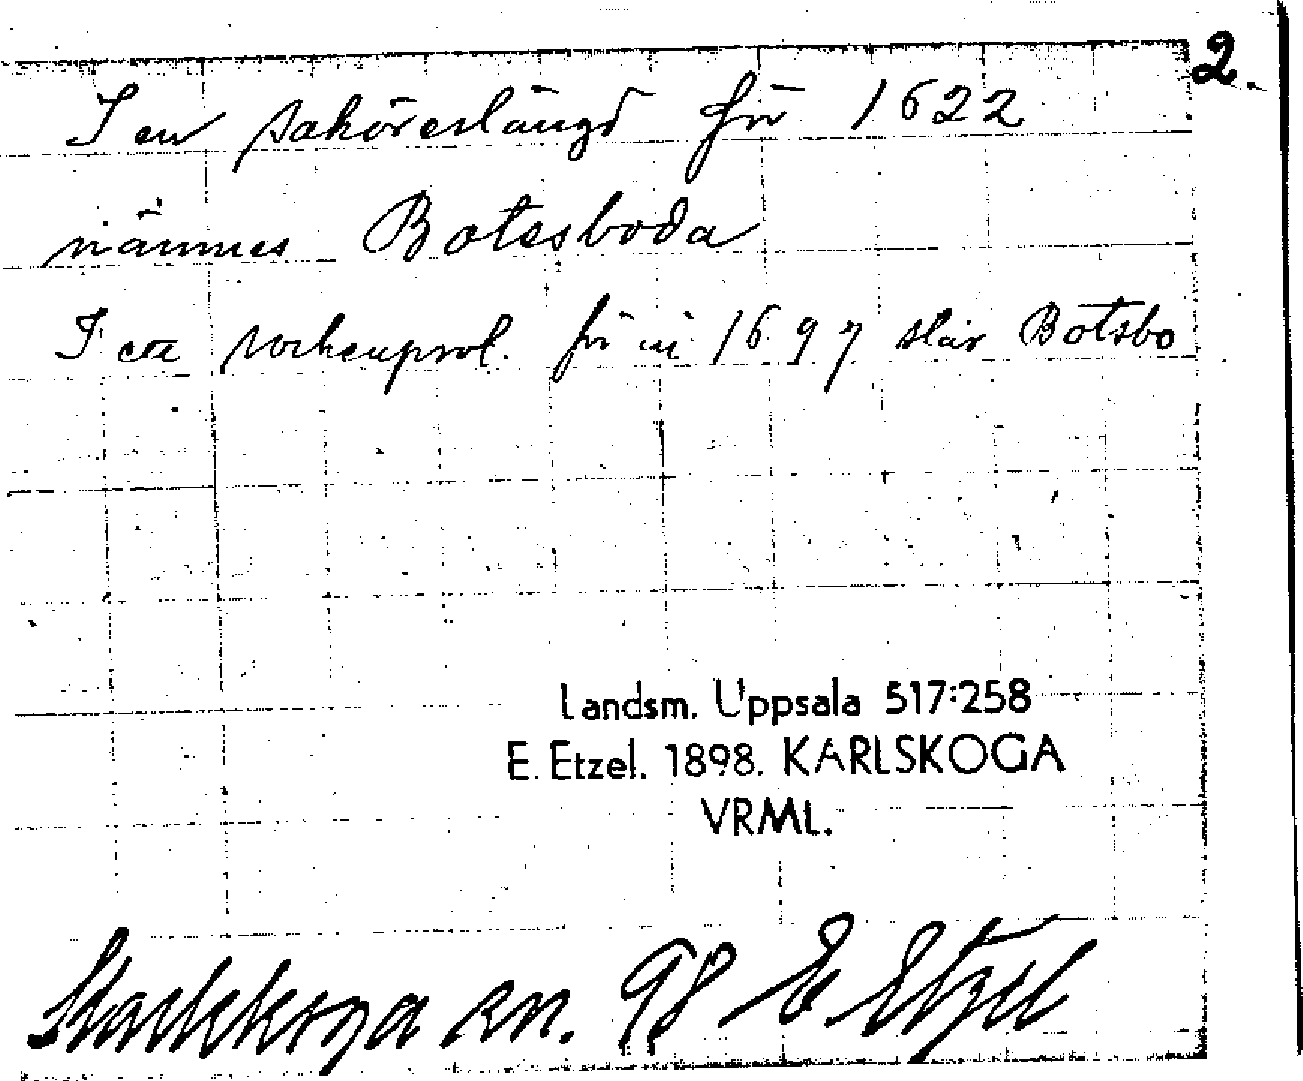 2.
I en sakörerlängd för 1622
nämnes Botesboda
I ett sockenprol. för 1697 står Botsbo
Landsm. Uppsala 517:258
E. Etzel. 1898. KARLSKOGA
VRML.
Karlskoga sn. 98 E Etzel